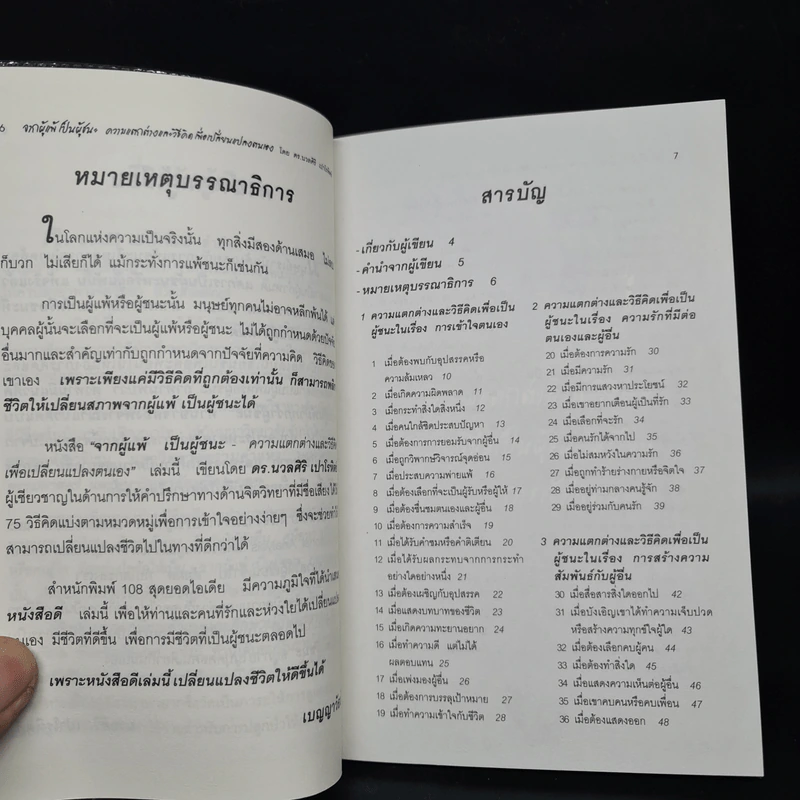 6 จากผู้แพ้ เป็นผู้ชนะ ความแตกต่างและวิธีคิดเพื่อเปลี่ยนแปลงตนเอง โดย ดร.นวลศิริ
หมายเหตุบรรณาธิการ
ในโลกแห่งความเป็นจริงนั้น ทุกสิ่งมีสองด้านเสมอ
ก็บวก ไม่เสียก็ได้ แม้กระทั่งการแพ้ชนะก็เช่นกัน
การเป็นผู้แพ้หรือผู้ชนะนั้น มนุษย์ทุกคนไม่อาจหลีกพ้นได้
บุคคลผู้นั้นจะเลือกที่จะเป็นผู้แพ้หรือผู้ชนะ ไม่ได้ถูกกำหนดด้วยปัจจัย
อื่นมากและสำคัญเท่ากับถูกกำหนดจากปัจจัยที่ความคิด
เขาเอง เพราะเพียงแค่มีวิธีคิดที่ถูกต้องเท่านั้น ก็สามารถ
ชีวิตให้เปลี่ยนสภาพจากผู้แพ้ เป็นผู้ชนะได้
หนังสือ "จากผู้แพ้ เป็นผู้ชนะ - ความแตกต่างและวิธีคิด
เพื่อเปลี่ยนแปลงตนเอง" เล่มนี้ เขียนโดย ดร.นวลศิริ เปาโรหิตย์
ผู้เชี่ยวชาญในด้านการให้คำปรึกษาทางด้านจิตวิทยาที่มีชื่อเสียง
75 วิธีคิดแบ่งตามหมวดหมู่เพื่อการเข้าใจอย่างง่ายๆ ซึ่งจะช่วย
สามารถเปลี่ยนแปลงชีวิตไปในทางที่ดีกว่าได้
สำหนักพิมพ์ 108 สุดยอดไอเดีย มีความภูมิใจที่ได้นำเสนอ
หนังสือดี เล่มนี้ เพื่อให้ท่านและคนที่รักและห่วงใยได้เปลี่ยน
ตนเอง มีชีวิตที่ดีขึ้น เพื่อการมีชีวิตที่เป็นผู้ชนะตลอดไป
เพราะหนังสือดีเล่มนี้ เปลี่ยนแปลงชีวิตให้ดีขึ้นได้
7
สารบัญ
- เกี่ยวกับผู้เขียน 4
- คำนำจากผู้เขียน 5
- หมายเหตุบรรณาธิการ 6
1 ความแตกต่างและวิธีคิดเพื่อเป็น
ผู้ชนะในเรื่อง การเข้าใจตนเอง
1 เมื่อต้องพบกับอุปสรรคหรือ
ความล้มเหลว 10
2 เมื่อเกิดความผิดพลาด 11
3 เมื่อกระทำสิ่งใดสิ่งหนึ่ง 12
4 เมื่อคนใกล้ชิดประสบปัญหา 13
5 เมื่อต้องการการยอมรับจากผู้อื่น 14
6 เมื่อถูกวิพากษ์วิจารณ์จุดอ่อน 15
7 เมื่อประสบความพ่ายแพ้ 16
8 เมื่อต้องเลือกที่จะเป็นผู้รับหรือผู้ให้ 17
9 เมื่อต้องชื่นชมตนเองและผู้อื่น 18
10 เมื่อต้องการความสำเร็จ 19
11 เมื่อได้รับคำชมหรือคำติเตียน 20
12 เมื่อได้รับผลกระทบจากการกระทำ
อย่างใดอย่างหนึ่ง 21
13 เมื่อต้องเผชิญกับอุปสรรค 22
14 เมื่อแสดงบทบาทของชีวิต 23
15 เมื่อเกิดความทะยานอยาก 24
16 เมื่อทำความดี แต่ไม่ได้
ผลตอบแทน 25
17 เมื่อเพ่งมองผู้อื่น 26
18 เมื่อต้องการบรรลุเป้าหมาย 27
19 เมื่อทำความเข้าใจกับชีวิต 28
2 ความแตกต่างและวิธีคิดเพื่อเป็น
ผู้ชนะในเรื่อง ความรักที่มีต่อ
ตนเองและผู้อื่น
20 เมื่อต้องการความรัก 30
21 เมื่อมีความรัก 31
22 เมื่อมีการแสวงหาประโยชน์ 32
23 เมื่อเขาอยากเตือนผู้เป็นที่รัก 33
24 เมื่อเลือกที่จะรัก 34
25 เมื่อคนรักได้จากไป 35
26 เมื่อไม่สมหวังในความรัก 36
27 เมื่อถูกทำร้ายร่างกายหรือจิตใจ 37
28 เมื่ออยู่ท่ามกลางคนรู้จัก 38
29 เมื่ออยู่ร่วมกับคนรัก 39
3 ความแตกต่างและวิธีคิดเพื่อเป็น
ผู้ชนะในเรื่อง การสร้างความ
สัมพันธ์กับผู้อื่น
30 เมื่อสื่อสารสิ่งใดออกไป 42
31 เมื่อบังเอิญเขาได้ทำความเจ็บปวด
หรือสร้างความทุกข์ใจผู้ใด 43
32 เมื่อต้องเลือกคบผู้คน 44
33 เมื่อต้องทำสิ่งใด 45
34 เมื่อแสดงความเห็นต่อผู้อื่น 46
35 เมื่อเขาคบคนหรือคบเพื่อน 47
36 เมื่อต้องแสดงออก 48